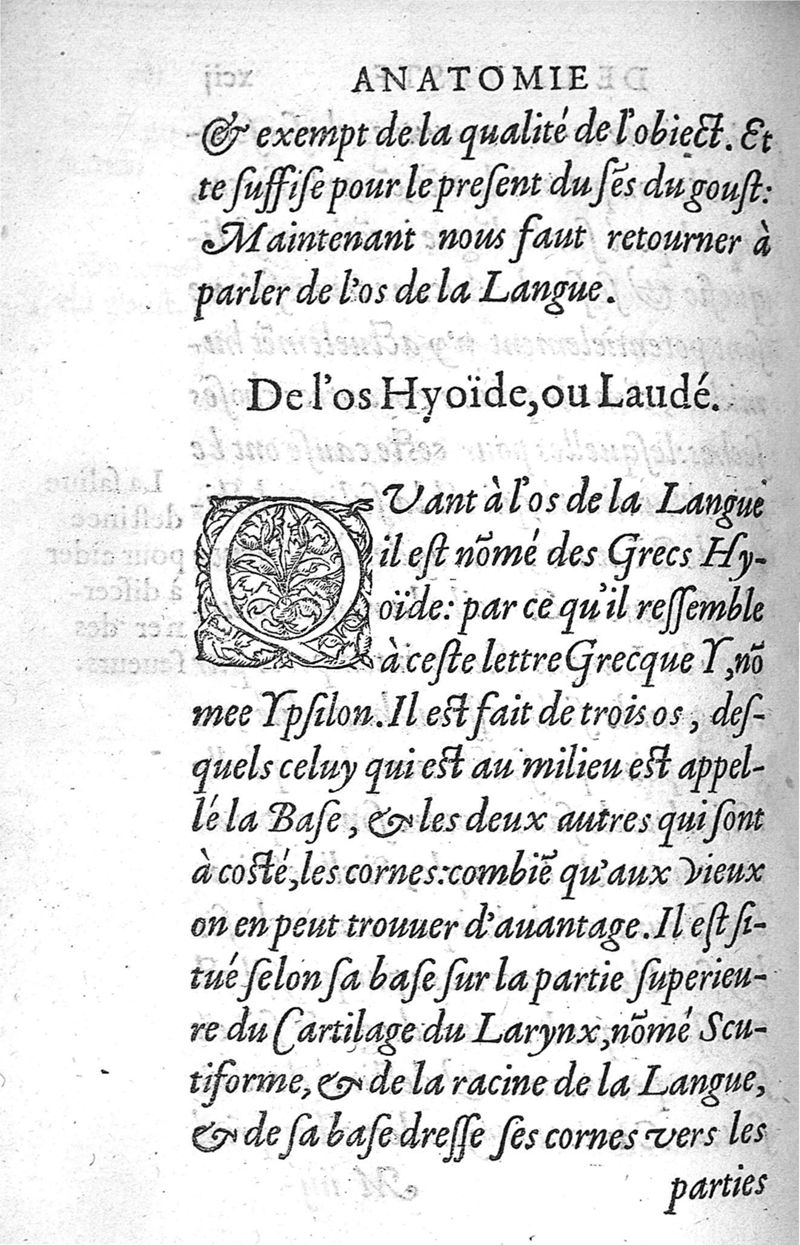 ANATOMIE
& exempt de la qualité de l'obiect. Et
te suffise pour le present du sẽs du goust:
Maintenant nous faut retourner à
parler de l'os de la Langue.
De l'os Hyoïde, ou Laudé.
QVant à l'os de la Langue
il est nõmé des Grecs Hy-
oïde: par ce qu'il ressemble
à ceste lettre Grecque Y, nõ
mee Ypsilon. Il est fait de trois os, des-
quels celuy qui est au milieu est appel-
lé la Base, & les deux autres qui sont
à costé, les cornes: combiẽ qu'aux vieux
on en peut trouuer d'auantage. Il est si-
tué selon sa base sur la partie superieu-
re du Cartilage du Larynx, nõmé Scu-
tiforme, & de la racine de la Langue,
& de sa base dresse ses cornes vers les
parties